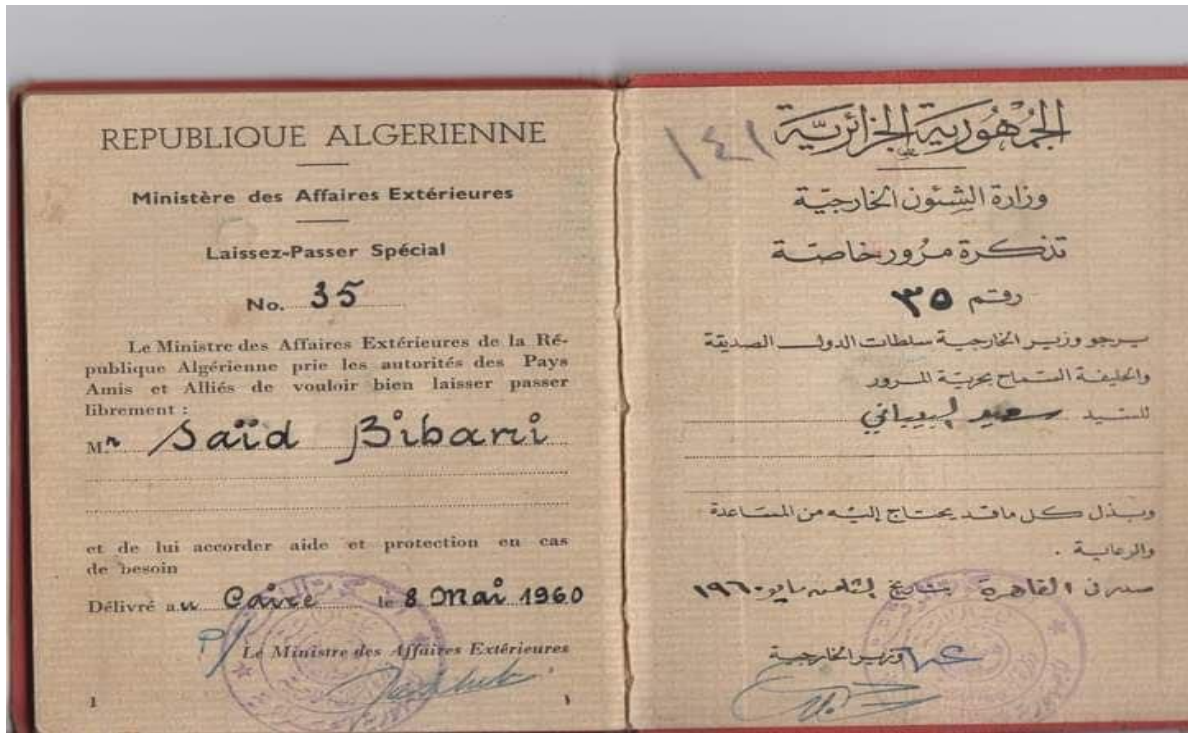 REPUBLIQUE ALGERIENNE
Ministère des Affaires Extérieures
Laissez-Passer Spécial
No. 35
Le Ministre des Affaires Extérieures de la Ré-
publique Algérienne prie les autorités des Pays
Amis et Alliés de vouloir bien laisser passer
librement :
Mr Saïd Bibani
et de lui accorder aide et protection en cas
de besoin
Délivré au Caire le 8 Mai 1960
P/ Le Ministre des Affaires Extérieures
1
١٤١
الجُمْهُورِيَة الجزائريّة
وزارة الشئون الخارجيّة
تذكرة مرُور خاصّة
رقم ٣٥
يرجو وزير الخارجية سلطات الدول الصديقة
والحليفة السماح بحريّة المرور
للسيد سعيد البيباني
وبذل كل ما قد يحتاج إليه من المساعدة
والرعاية .
صدر في القاهرة بتاريخ الثامن مايو ١٩٦٠
وزير الخارجية